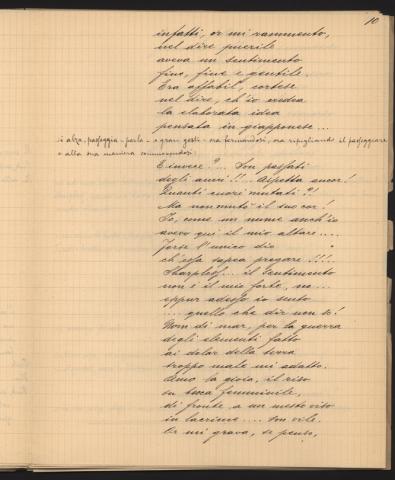 10
infatti, or mi rammento,
nel dire puerile
aveva un sentimento
fine, fine e gentile.
Era affabil, cortese
nel dire, ch'io credea
la elaborata idea
pensata in giapponese...
si alza, passeggia - parla - a gran gesti - ora fermandosi, ora ripigliando il passeggiare
e alla sua maniera
E invece?... Son passati
degli anni!! Aspetta ancor!
Quanti cuori mutati?!
Ma non mutò il suo cor!
Io, come un nume anch'io
avevo qui il mio altare....
Forse l'unico dio
ch'essa sapea pregare!!!..
Sharpless... il sentimento
non è il mio forte, no...
eppur adesso io sento
.... quello che dir non so!
Uom di mar, per la guerra
degli elementi fatto
ai dolor della terra
troppo male mi adatto.
Amo la gioia, il riso
su bocca femminile,
di fronte a un mesto viso
in lacrime.... son vile.
Or mi grava, se penso,